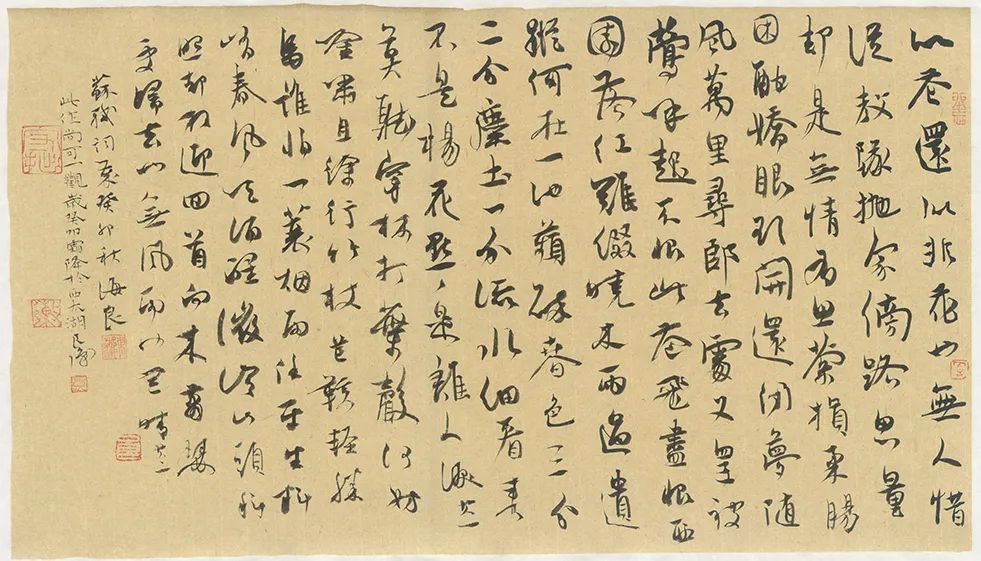 似花還似非花也無人惜
從教隊拋家傍路思量
却是無情有思縈損柔腸
困酣嬌眼欲開還閉夢隨
風萬里尋郎去處又還被
鶯呼起不恨此花飛盡恨西
園落紅難綴曉來雨過遺
蹤何在一池蘋碎春色三分
二分塵土一分流水細看來
不是楊花點點是離人淚其一
莫聽穿林打葉聲何妨
吟嘯且徐行竹杖芒鞋輕勝
馬誰怕一蓑烟雨任平生料
峭春風吹酒醒微冷山頭斜
照却相迎回首向來蕭瑟
處歸去也無風雨也無晴其二
蘇軾詞癸卯秋海良
此作尚可一觀歲癸卯霜降於西太湖